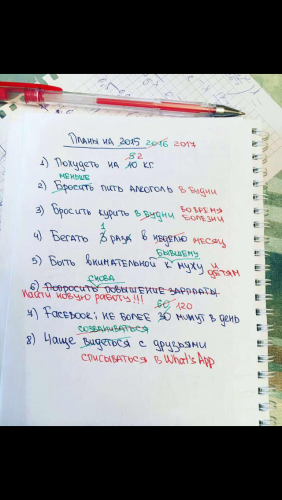 Планы на 2015 2016 2017
52
1) Похудеть на 10 кг
меньше
2) Бросить пить алкоголь в будни
3) Бросить курить в будни во время болезни
1
4) Бегать 3 раза в неделю месяц
бывшему
5) Быть внимательной к мужу и детям
снова
6) Попросить повышение зарплаты
Найти новую работу!!!
60 120
7) Facebook: не более 30 минут в день
созваниваться
8) Чаще видеться с друзьями
списываться в What's App